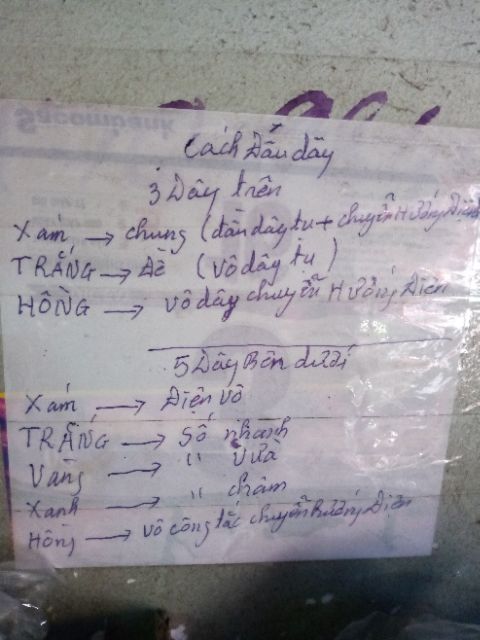 Sacombank
Cách Đấu dây
3 Dây trên
Xám → chung (đầu dây tụ + chuyển Hướng Điện
TRẮNG → Đề (vô dây tụ)
HỒNG → vô dây chuyển Hướng Điện
5 Dây Bên dưới
Xám → Điện vô
TRẮNG → Số nhanh
Vàng → " vừa
Xanh → " chậm
Hồng → vô công tắc chuyển hướng Điện